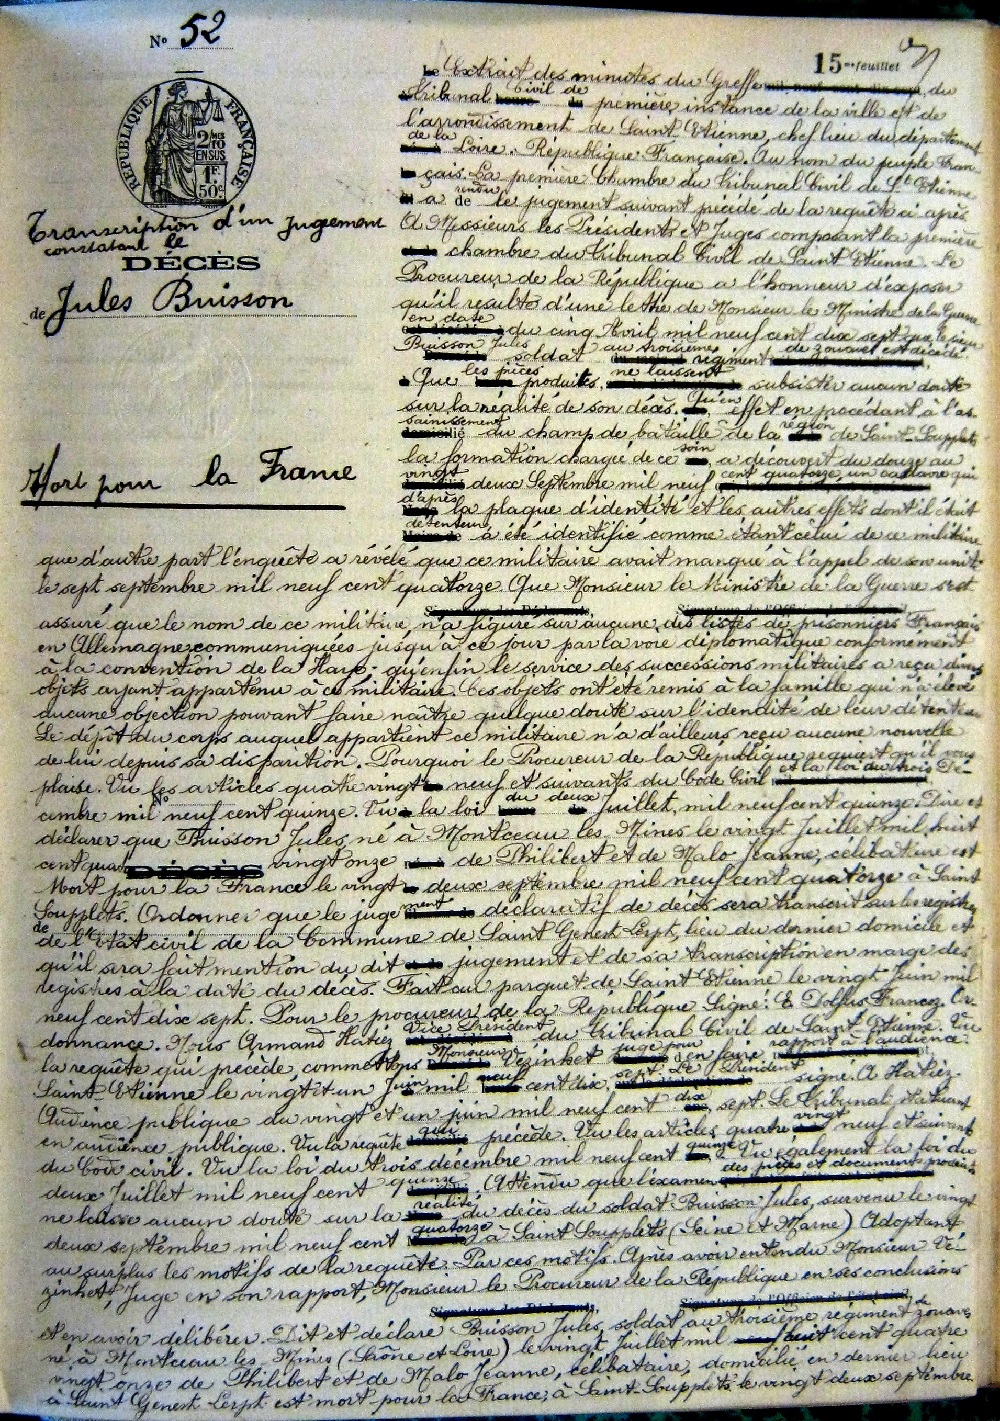 N° 52
15me feuillet
RÉPUBLIQUE FRANÇAISE
2/10 MES
EN SUS
1F.
50c
Transcription d'un Jugement
constatant le
DÉCÈS
de Jules Buisson
Mort pour la France
Le Extrait des minutes du Greffe du
tribunal Civil de première instance de la ville et de
l'arrondissement de Saint-Etienne, chef lieu du département
de la Loire. République Française. Au nom du peuple Fran
çais. La première Chambre du tribunal Civil de St Etienne
a rendu le jugement suivant précédé de la requête ci après
A Messieurs les Présidents et Juges composant la première
chambre du tribunal Civil de Saint Etienne. Le
Procureur de la République a l'honneur d'exposer
qu'il resulte d'une lettre de Monsieur le Ministre de la Guerre
en date du cinq Avril mil neuf cent dix sept que le sieur
Buisson Jules soldat au troisième régiment de zouaves est décédé
Que les pièces produites ne laissent subsister aucun doute
sur la réalité de son décès. Qu'en effet en procédant à l'as
sainissement du champ de bataille de la région de Saint-Soupplets,
la formation chargée de ce soin, a découvert du douze au
vingt deux Septembre mil neuf cent quatorze, un cadavre qui
d'après la plaque d'identité et les autres effets dont il était
détenteur a été identifié comme étant celui de ce militaire
que d'autre part l'enquête a révélé que ce militaire avait manqué à l'appel de son unité
le sept septembre mil neuf cent quatorze. Que Monsieur le Ministre de la Guerre s'est
assuré que le nom de ce militaire, n'a figuré sur aucune des listes de prisonniers Français
en Allemagne communiquées jusqu'à ce jour par la voie diplomatique conformément
à la convention de la Haye; qu'enfin le service des successions militaires a reçu divers
objets ayant appartenu à ce militaire. Ces objets ont été remis à la famille qui n'a élevé
aucune objection pouvant faire naître quelque doute sur l'idendité de leur détenteur
Le dépôt du corps auquel appartient ce militaire n'a d'ailleurs reçu aucune nouvelle
de lui depuis sa disparition. Pourquoi le Procureur de la République requiert qu'il vous
plaise. Vu les articles quatre vingt neuf et suivants du Code Civil et la loi du trois Dé-
cembre mil neuf cent quinze. Vu la loi du deux Juillet, mil neuf cent quinze. Dire et
déclarer que Buisson Jules, né à Montceau les Mines le vingt Juillet mil huit
cent quatre vingt onze de Philibert et de Malo Jeanne, célibataire est
Mort pour la France le vingt deux septembre mil neuf cent quatorze à Saint
Soupplets. Ordonner que le jugement déclaratif de décès sera transcrit sur les registres
de l'Etat civil de la Commune de Saint Genest Lerpt, lieu du dernier domicile et
qu'il sera fait mention du dit jugement et de sa transcription en marge des
registres à la date du décès. Fait au parquet de Saint Etienne le vingt Juin mil
neuf cent dix sept. Pour le procureur de la République Signé: E Dolfus Francoz. Or-
donnance. Nous Armand Hatiez Vice Président du tribunal Civil de Saint-Etienne. Vu
la requête qui précède, commettons Monsieur Vézinhet juge pour en faire rapport à l'audience.
Saint-Etienne le vingt et un Juin mil neuf cent dix sept. Le Président signé. A Hatiez.
Audience publique du vingt et un juin mil neuf cent dix sept. Le tribunal statuant
en audience publique. Vu la requête qui précède. Vu les articles quatre vingt neuf et suivant
du Code civil. Vu la loi du trois décembre mil neuf cent quinze. Vu également la loi du
deux Juillet mil neuf cent quinze. Attendu que l'examen des pièces et documents produits
ne laisse aucun doute sur la réalité du décès du soldat Buisson Jules, survenu le vingt
deux septembre mil neuf cent quatorze à Saint Soupplets (Seine et Marne) Adoptant
au surplus les motifs de la requête. Par ces motifs. Après avoir entendu Monsieur Vé-
zinhet, Juge en son rapport, Monsieur le Procureur de la République en ses conclusions
et en avoir délibéré. Dit et déclare Buisson Jules, soldat au troisième régiment de zouaves
né, à Montceau les Mines (Saône et Loire) le vingt Juillet mil huit cent quatre
vingt onze de Philibert et de Malo Jeanne, célibataire, domicilié en dernier lieu
à Saint Genest Lerpt est mort pour la France, à Saint-Soupplets le vingt deux septembre